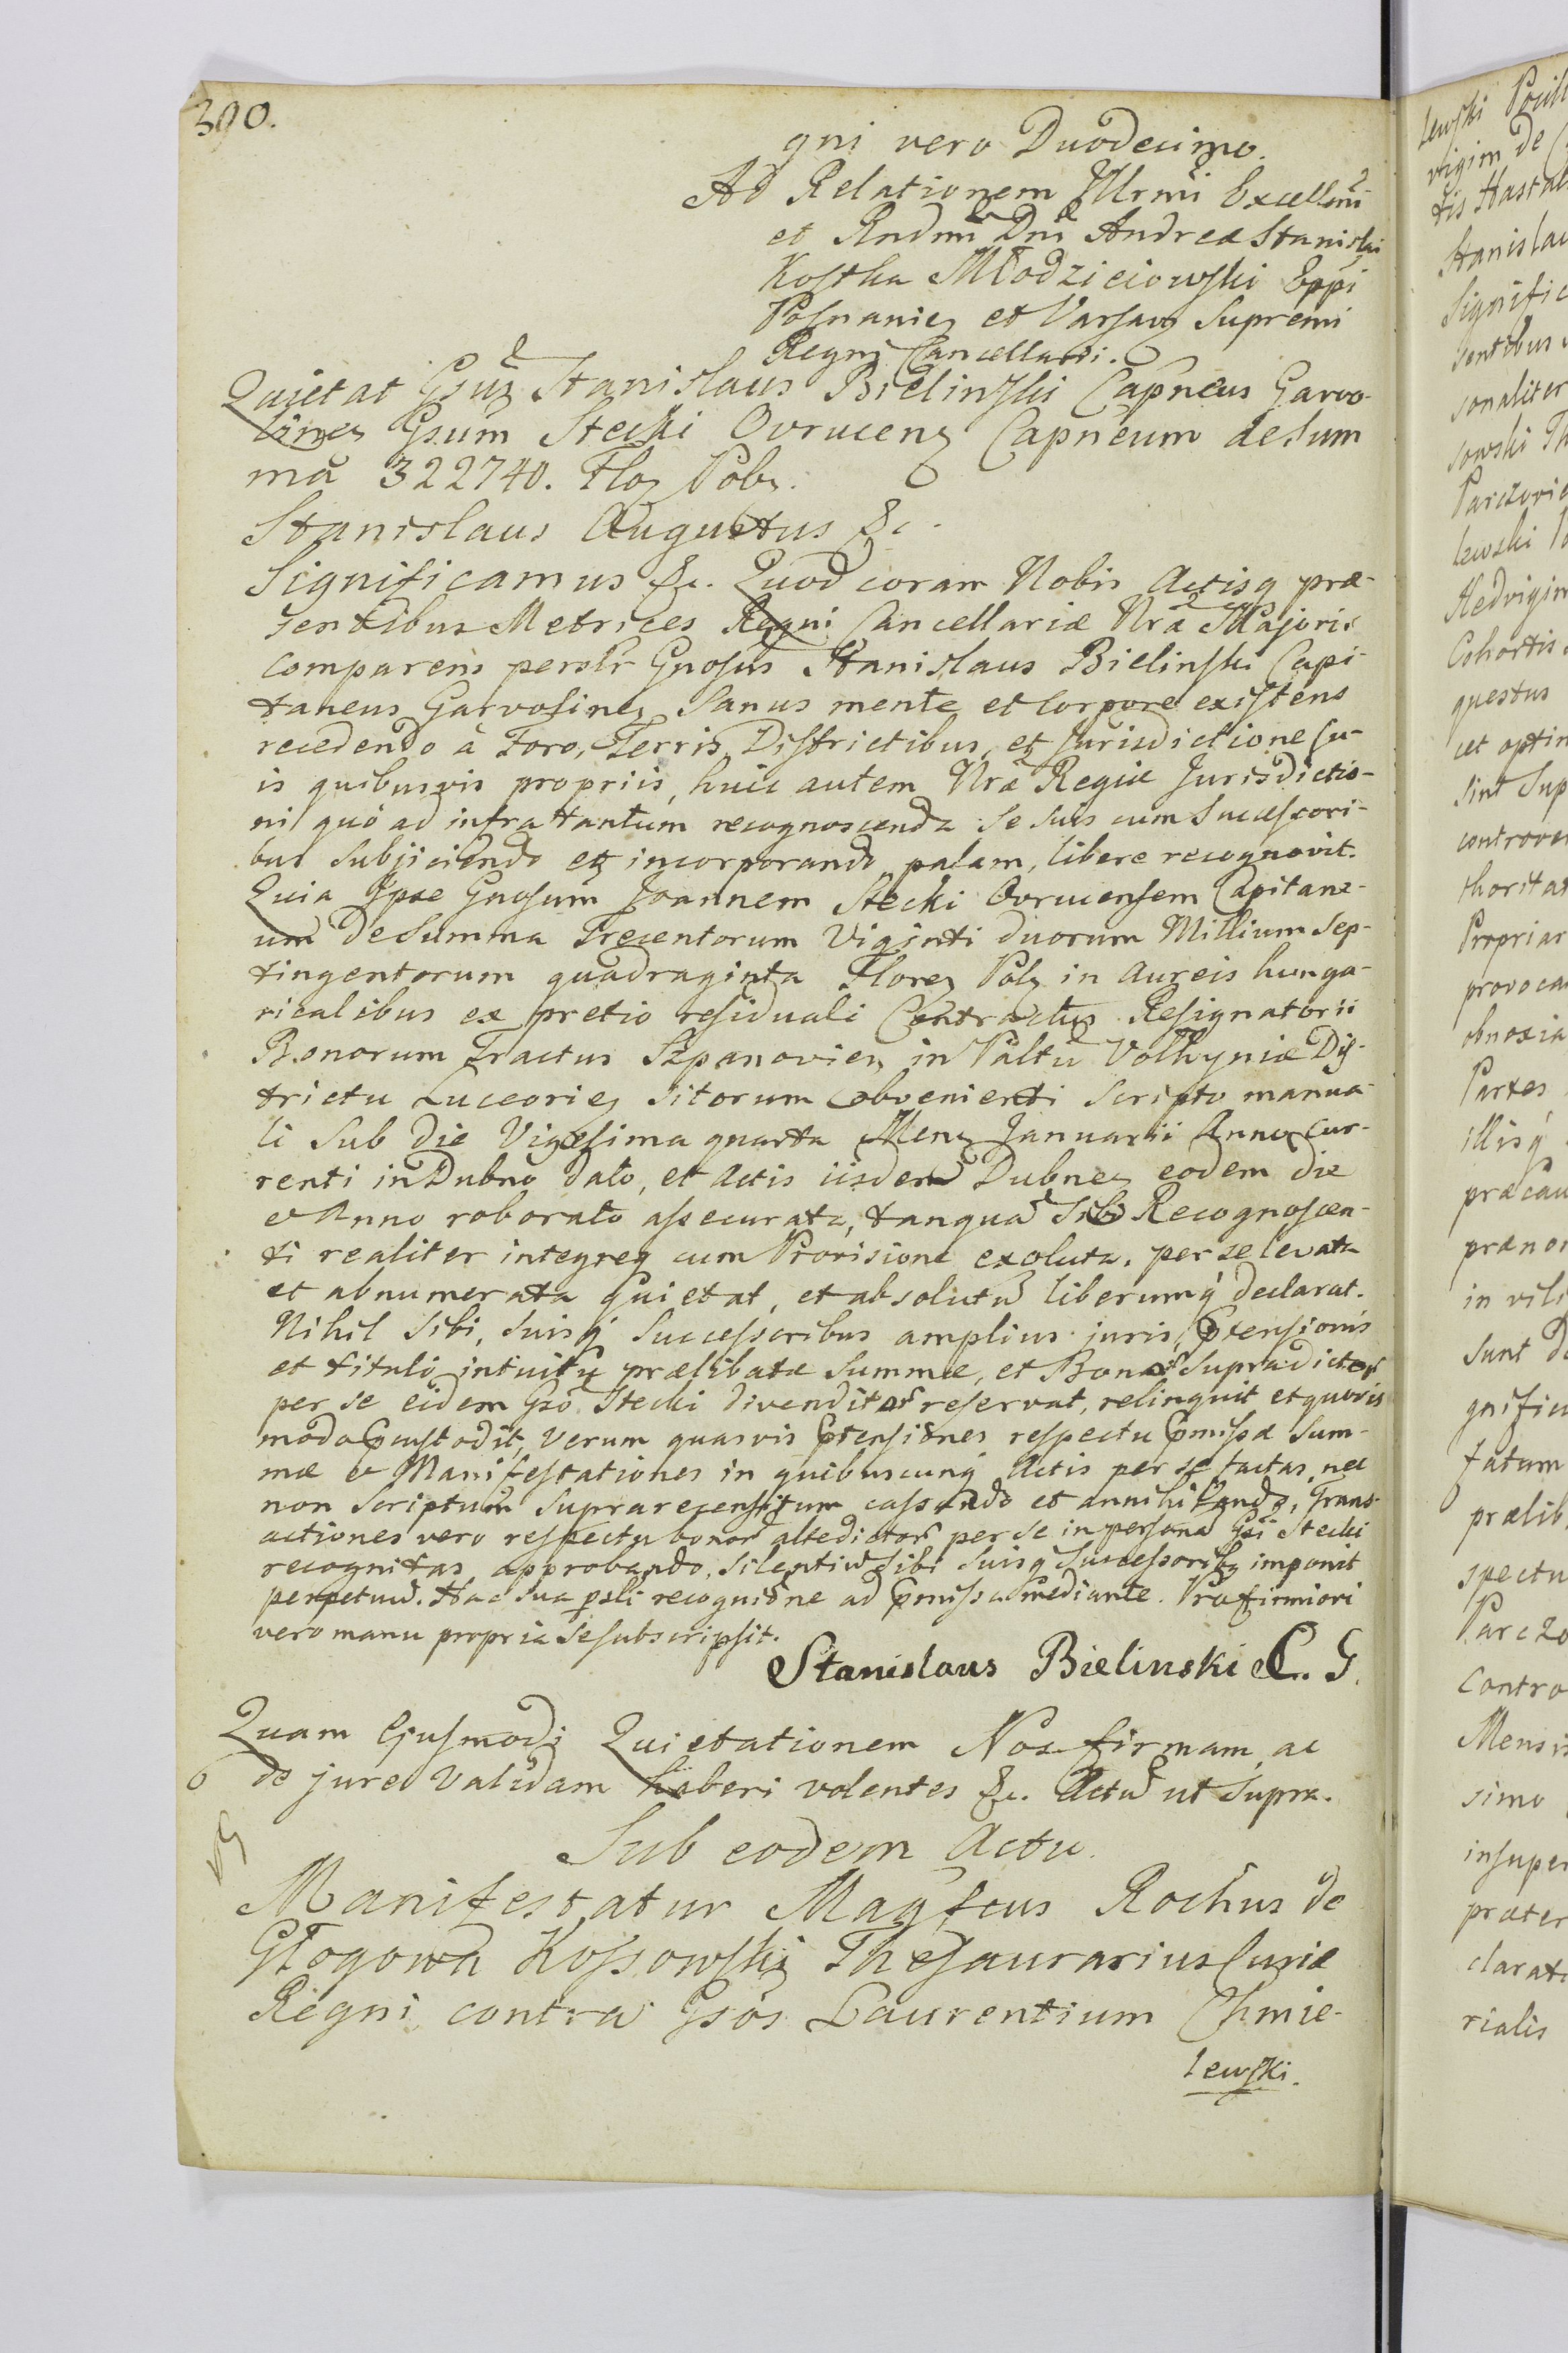 390.
gni vero Duodecimo.
Ad Relationem Illrmi Excellmi
et Rndmi Dni Andreæ Stanislai
Kostka Młodzieiowski Eppi
Posnanien et Varsav Supremi
Regni Cancellarii.
Quietat Gsus Stanislaus Bielinski Capneus Garvo-
linen Gsum Stecki Ovrucen Capneum de Sum
ma 322740. Flo Pol.
Stanislaus Augustus &c.
Significamus &c. Quod coram Nobis Actisq præ-
sentibus Metrices Regni Cancellariæ Nræ Majoris
comparens personlr Gnosus Stanislaus Bielinski Capi-
taneus Garvolinen Sanus mente et corpore existens
recedendo à Foro, Terris, Districtibus, et Jurisdictione su-
is quibusvis propriis, huic autem Nræ Regiæ Jurisdictio-
ni quò ad infra tantum recognoscenda se suis cum Successori-
bus subjiciendo et incorporando, palam, libere recognovit.
Quia Ipse Gnosum Joannem Stecki Ovrucensem Capitane-
um de Summa Trecentorum Viginti duorum Millium Sep-
tingentorum quadraginta Floren Pol in aureis hunga-
ricalibus ex pretio residuali Contractus Resignatorii
Bonorum Tractus Szpanovien in Paltu Volhyniæ Dis-
trictu Luceorien sitorum obvenienti Scripto manua-
li sub die Vigesima quarta Mens Januarii Anno cur-
renti in Dubno dato, et Actis iisdem Dubnen eodem die
et Anno roborato assecurata, tanqua sibi Recognoscen-
ti realiter integreq cum Provisione exoluta, per se levata
et abnumerata quietat, et absolutu liberumq declarat.
Nihil sibi, suisq Successoribus amplius juris, prtensionis
et tituli intuitu prælibatæ Summæ, et Bonor Supradictor
per se eidem Gso Stecki divenditor reservat, relinquit et quovis
modo prcustodit, verum quasvis prtensiones respectu prmissæ Sum-
mæ et Manifestationes in quibuscunq Actis per se factas, nec
non Scriptum suprarecensitum cassando et annihilando, Trans-
actiones vero respectu bonor altedictor per se in persona Gsi Stecki
recognitas approbando, silentiu sibi suisq Successoribq imponit
perpetuu. Hac sua prsli recognione ad prmissa mediante. Pro firmiori
vero manu propria se subscripsit.
Stanislaus Bielinski C. G.
Quam Ejusmodi Quietationem Nos firmam, ac
6 de jure Validam haberi volentes &c. Actu ut Supra.
Sub eodem Actu.
Manifestatur Magfcus Rochus de
Głogowa Kossowski Thesaurarius Curiæ
Regni contra Gsos Laurentium Chmie-
lewski.
lewski
vigim de
tis
Stanislau
Signific
sentibus
sonaliter
sowski Th
Parczovie
lewski
Hedvigim
Cohortis
questus
et optim
sint Sup
controver
thoritat
Propriar
provocan
obnoxia
Partes
illisq
præcau
præno
in vili
sunt
gnific
fatum
prælib
spectu
Parczo
Contro
Mensis
simo
insuper
præter
clarat
rialis